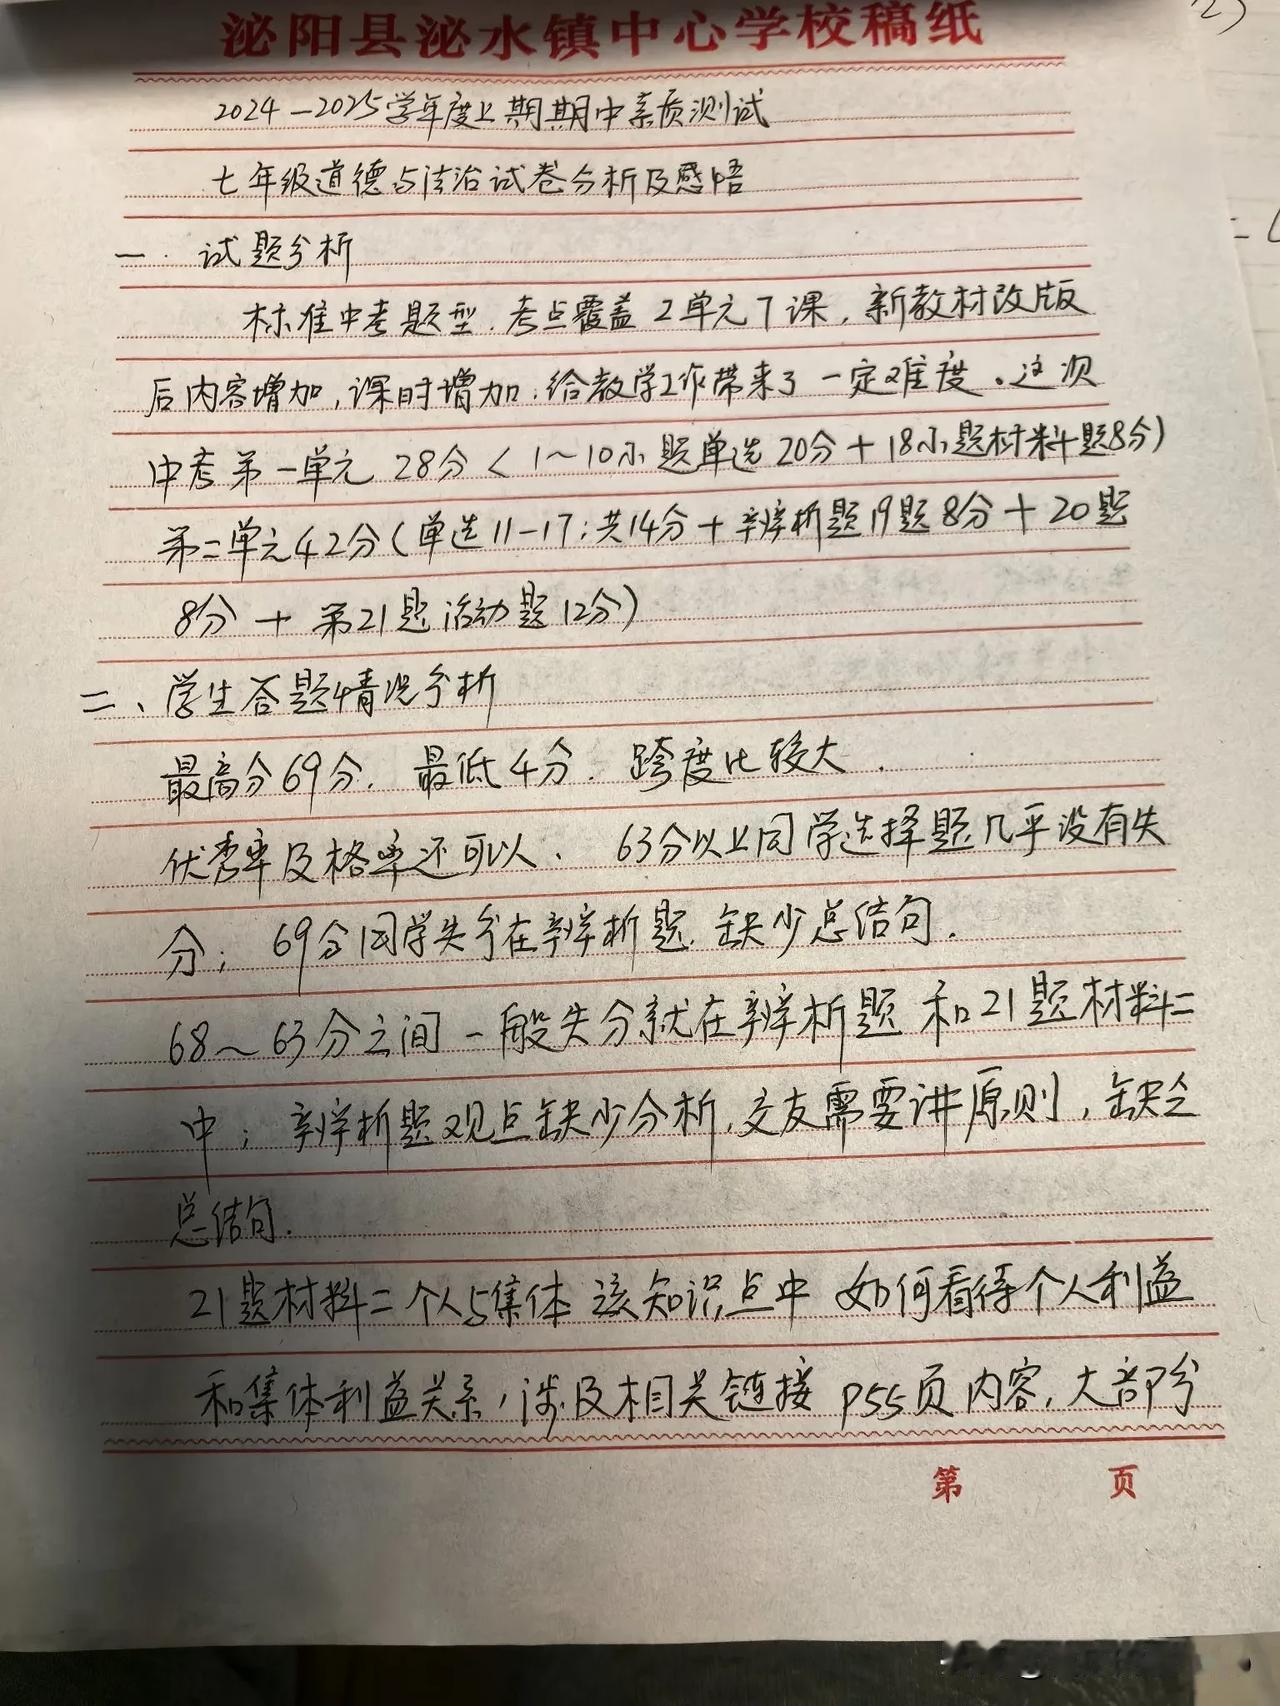 泌阳县泌水镇中心学校稿纸
2024-2025学年度上期期中素质测试
七年级道德与法治试卷分析及感悟
一. 试题分析
标准中考题型. 考点覆盖2单元7课, 新教材改版
后内容增加, 课时增加. 给教学工作带来了一定难度。这次
中考第一单元 28分 < 1~10小题单选20分+18小题材料题8分)
第二单元42分(单选11-17:共14分+辨析题19题8分+20题
8分+第21题活动题12分)
二、学生答题情况分析
最高分69分. 最低4分. 跨度比较大.
优秀率及格率还可以、63分以上同学选择题几乎没有失
分; 69分同学失分在辨析题. 缺少总结句.
68~63分之间一般失分就在辨析题和21题材料二
中; 辨析题观点缺少分析, 交友需要讲原则, 缺乏
总结句.
21题材料二个人与集体 该知识点中 如何看待个人利益
和集体利益关系, 涉及相关链接 P55页内容, 大部分
第 页